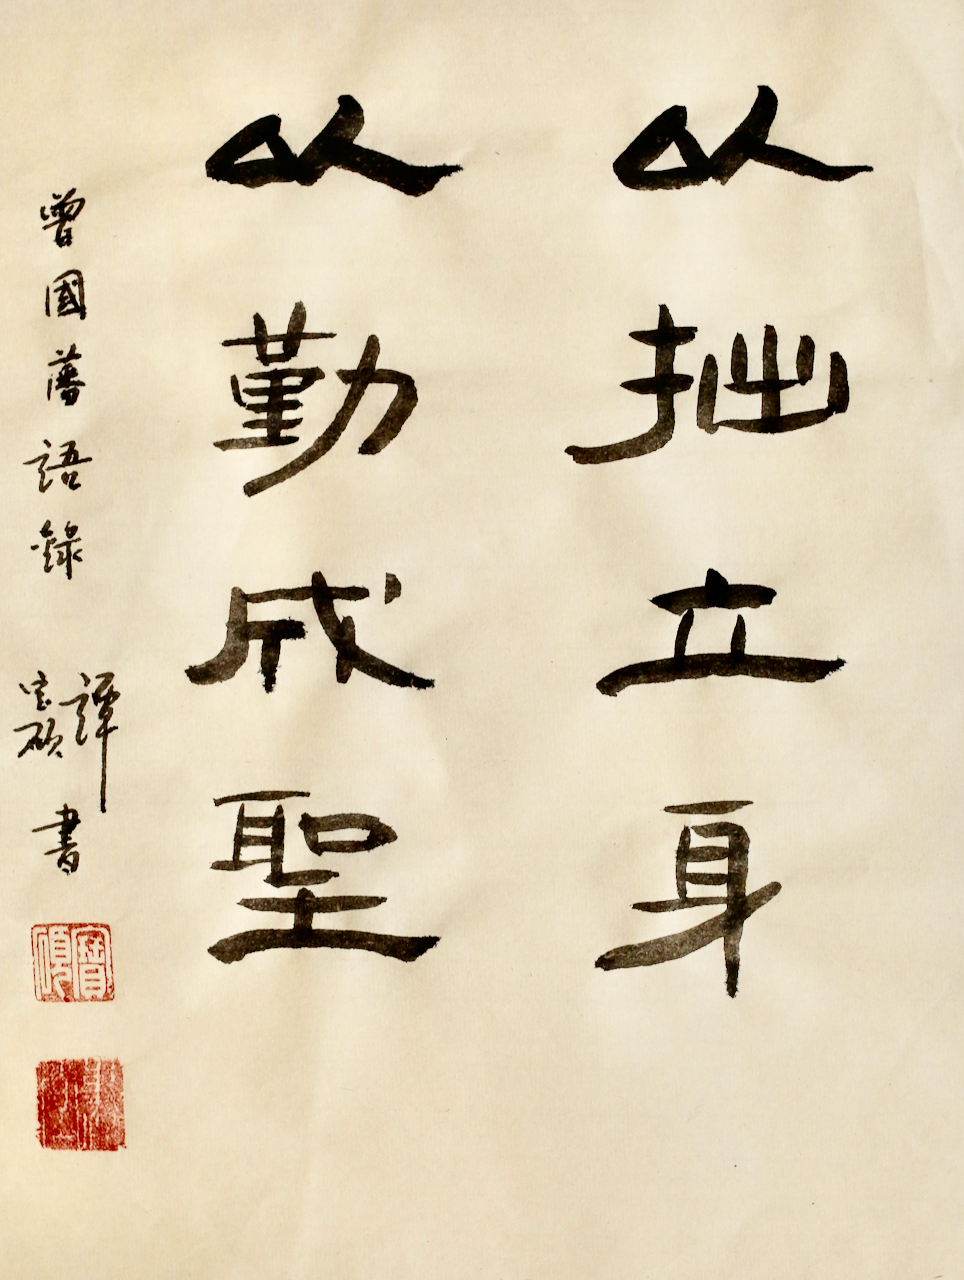 以拙立身
以勤成聖
曾國藩語錄
譚寶碩書
寶碩